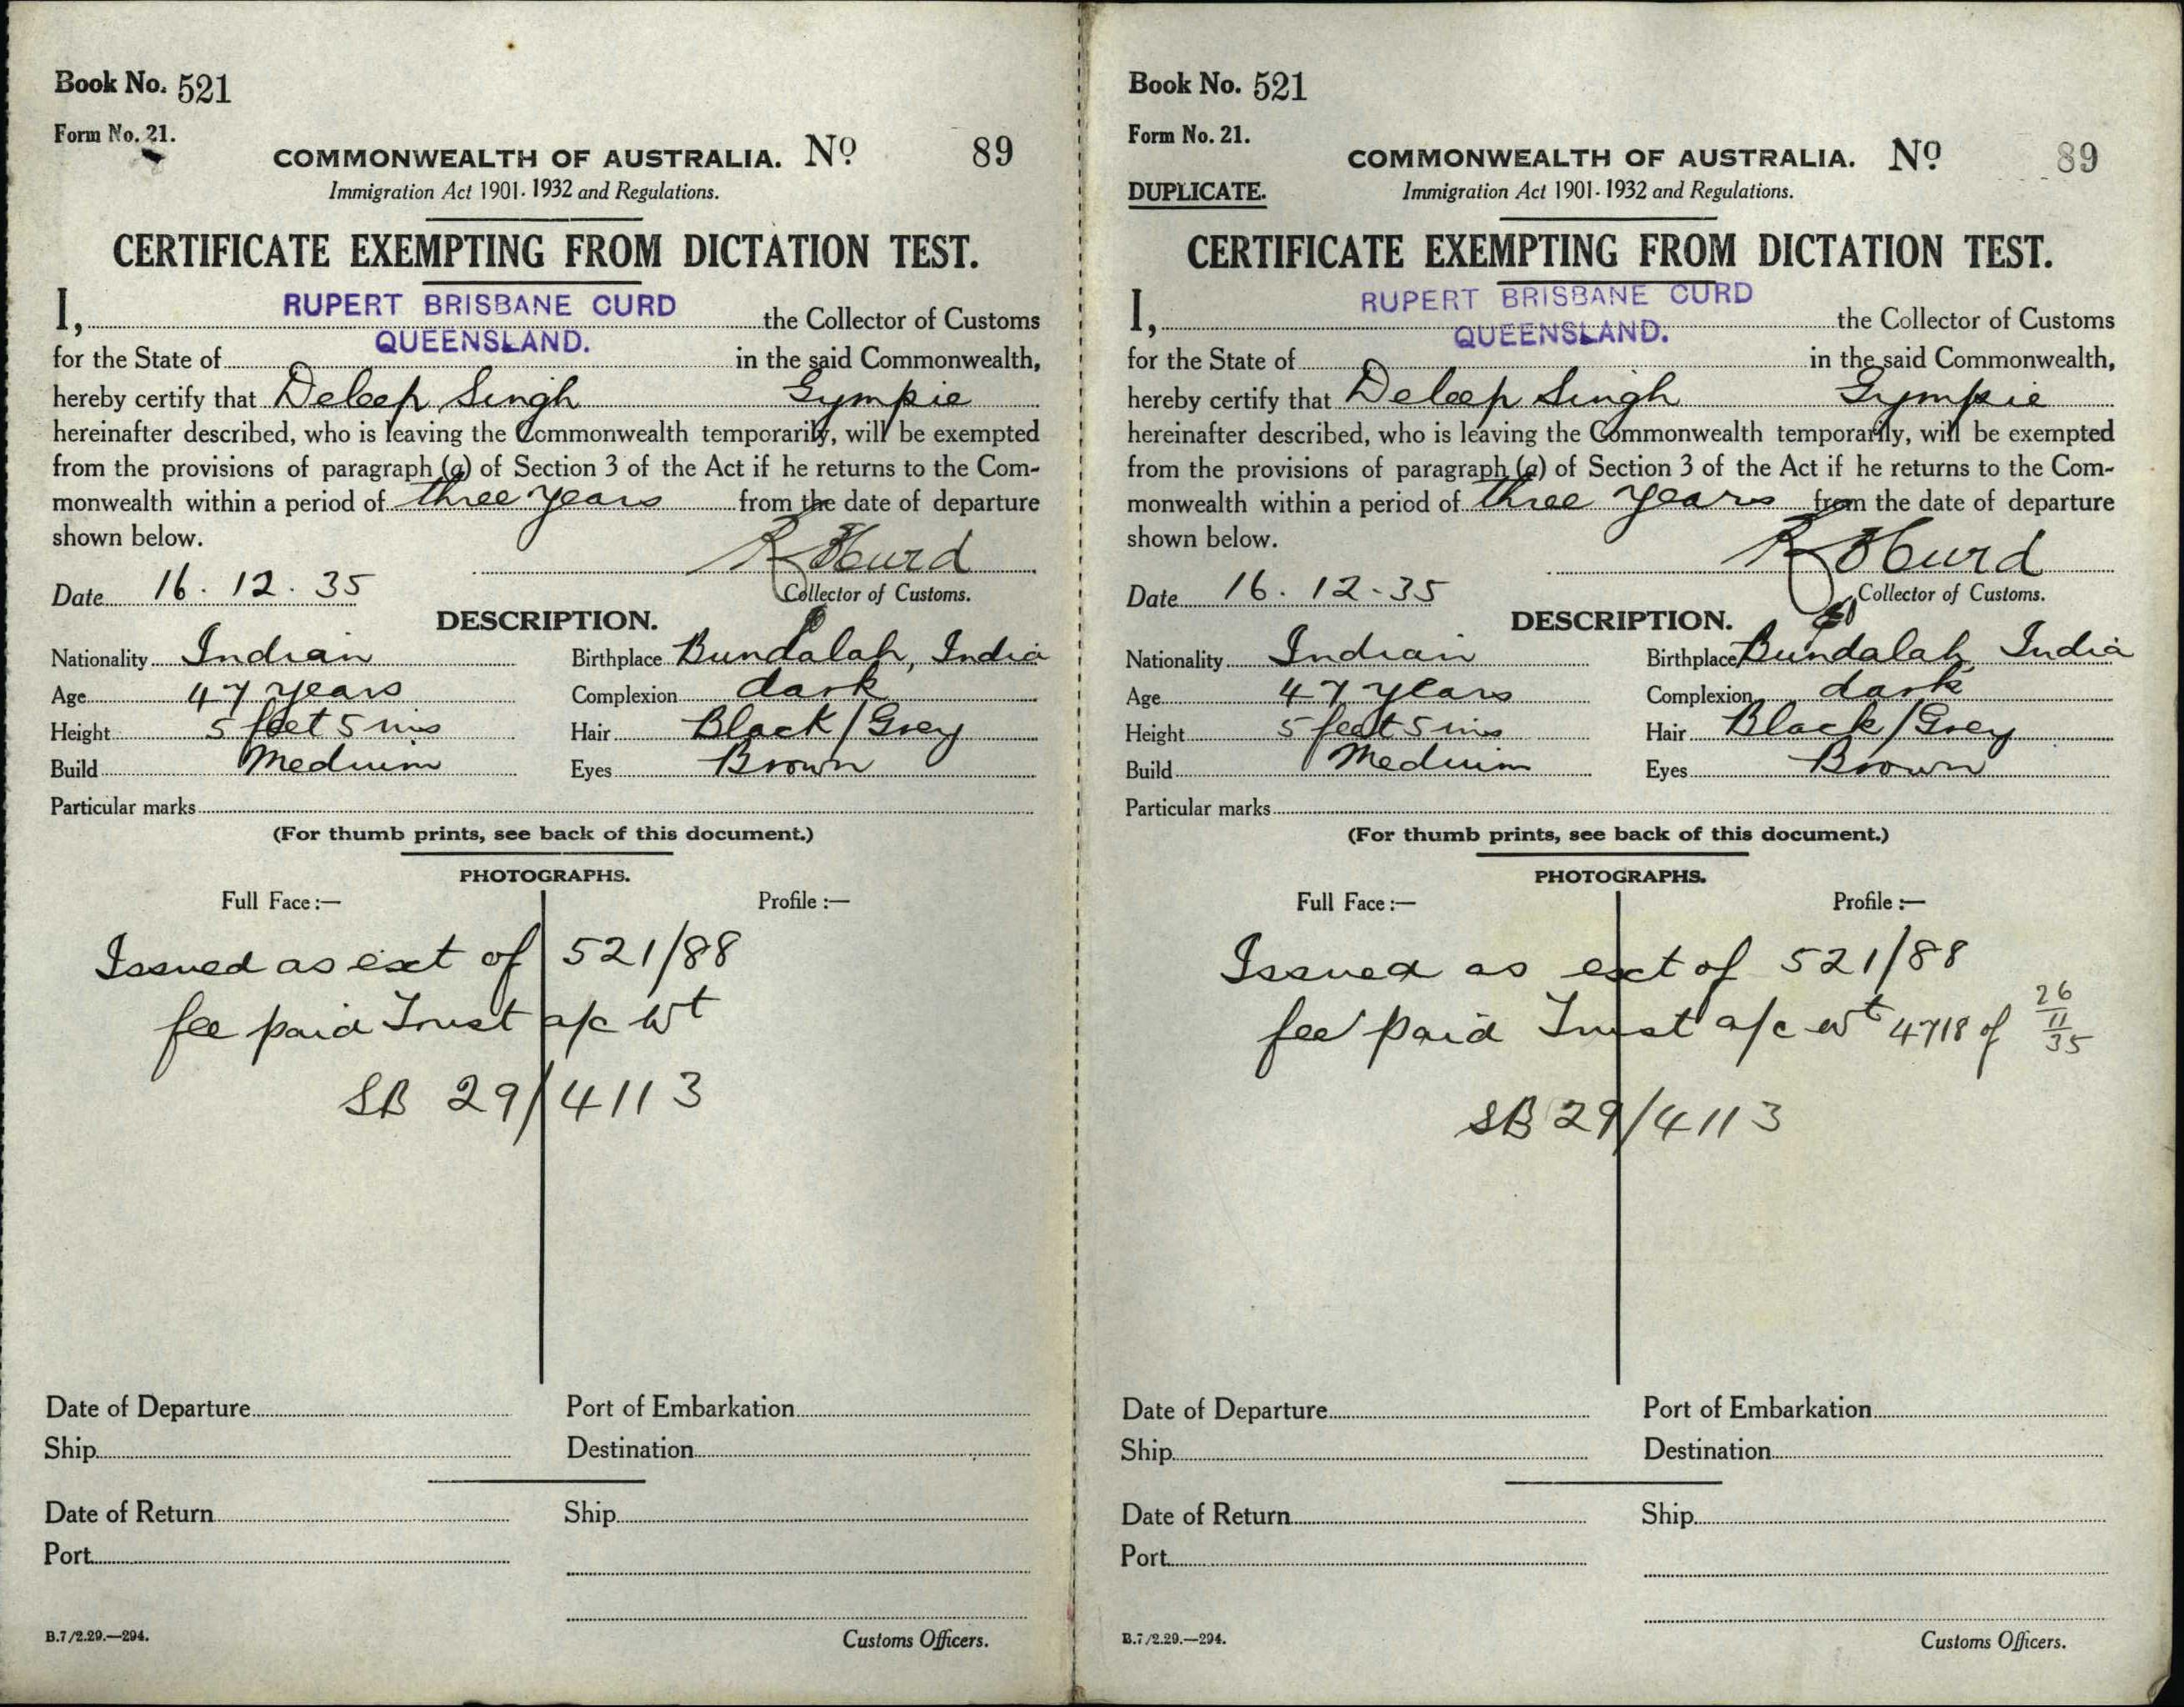 Book No. 521
Form No. 21.
COMMONWEALTH OF AUSTRALIA. No 89
Immigration Act 1901-1932 and Regulations.
CERTIFICATE EXEMPTING FROM DICTATION TEST.
I, RUPERT BRISBANE CURD the Collector of Customs
for the State of QUEENSLAND. in the said Commonwealth,
hereby certify that Deleep Singh Gympie
hereinafter described, who is leaving the Commonwealth temporarily, will be exempted
from the provisions of paragraph (a) of Section 3 of the Act if he returns to the Com-
monwealth within a period of three years from the date of departure
shown below.
R B Curd
Date 16.12.35 Collector of Customs.
DESCRIPTION.
Nationality Indian Birthplace Bundalah, India
Age 47 years Complexion dark
Height 5 feet 5 ins Hair Black/Grey
Build Medium Eyes Brown
Particular marks
(For thumb prints, see back of this document.)
PHOTOGRAPHS.
Full Face:— Profile:—
Issued as ext of 521/88
fee paid Trust a/c wt
SB 29/4113
Date of Departure Port of Embarkation
Ship Destination
Date of Return Ship
Port
B.7/2.29.—294. Customs Officers.
Book No. 521
Form No. 21.
COMMONWEALTH OF AUSTRALIA. No 89
DUPLICATE. Immigration Act 1901-1932 and Regulations.
CERTIFICATE EXEMPTING FROM DICTATION TEST.
I, RUPERT BRISBANE CURD the Collector of Customs
for the State of QUEENSLAND. in the said Commonwealth,
hereby certify that Deleep Singh Gympie
hereinafter described, who is leaving the Commonwealth temporarily, will be exempted
from the provisions of paragraph (a) of Section 3 of the Act if he returns to the Com-
monwealth within a period of three years from the date of departure
shown below.
R B Curd
Date 16.12-35 Collector of Customs.
DESCRIPTION.
Nationality Indian Birthplace Bundalah, India
Age 47 years Complexion dark
Height 5 feet 5 ins Hair Black/Grey
Build Medium Eyes Brown
Particular marks
(For thumb prints, see back of this document.)
PHOTOGRAPHS.
Full Face:— Profile:—
Issued as ext of 521/88
fee paid Trust a/c wt 4718 of 26/11/35
SB 29/4113
Date of Departure Port of Embarkation
Ship Destination
Date of Return Ship
Port
B.7/2.29.—294. Customs Officers.